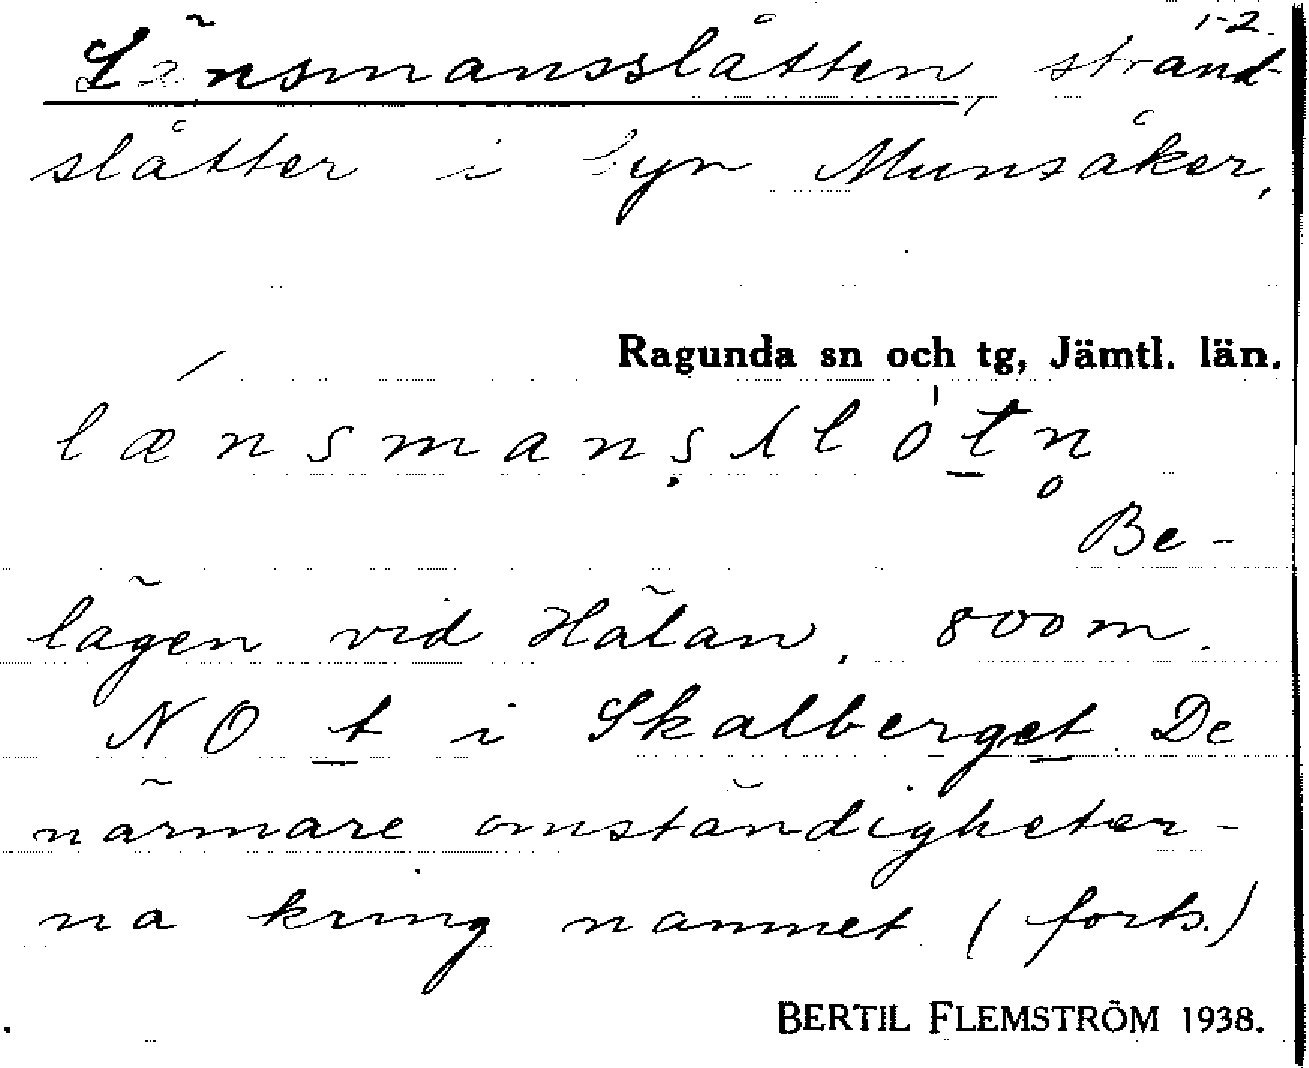 1-2.
Länsmansslåtten, strand-
slåtter i byn Munsåker,
Ragunda sn och tg, Jämtl. län.
lǽnsmanṣslótn̥
Be-
lägen vid Hälan, 800 m.
NO t i Skalberget. De
närmare omständigheter-
na kring namnet (forts.)
BERTIL FLEMSTRÖM 1938.